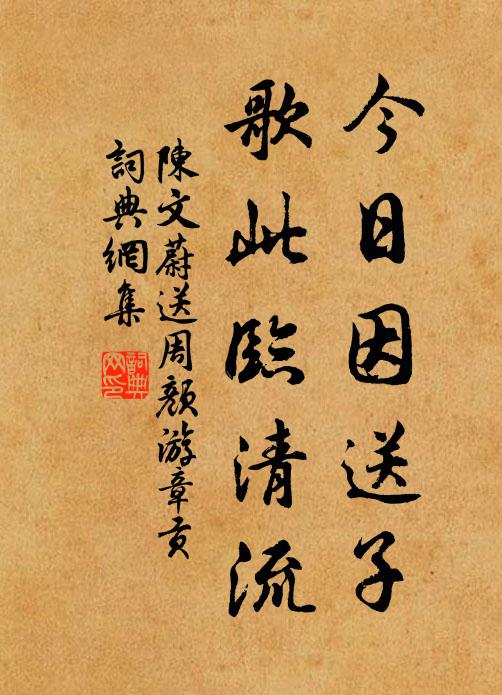 今日因送子
歌此臨清流
陳文蔚送周顏游章貢
詞典網集
詞典
網印